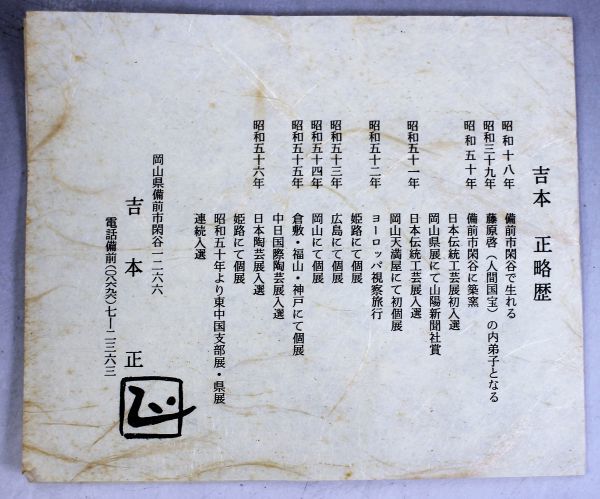 吉本 正略歴
昭和十八年 備前市閑谷で生れる
昭和三十九年 藤原啓（人間国宝）の内弟子となる
昭和五十年 備前市閑谷に築窯
日本伝統工芸展初入選
岡山県展にて山陽新聞社賞
昭和五十一年 日本伝統工芸展入選
岡山天満屋にて初個展
昭和五十二年 ヨーロッパ視察旅行
姫路にて個展
昭和五十三年 広島にて個展
昭和五十四年 岡山にて個展
昭和五十五年 倉敷・福山・神戸にて個展
中日国際陶芸展入選
昭和五十六年 日本陶芸展入選
姫路にて個展
昭和五十年より東中国支部展・県展
連続入選
岡山県備前市閑谷一二六六
吉本 正
電話備前（〇八六九六）七―二三六三